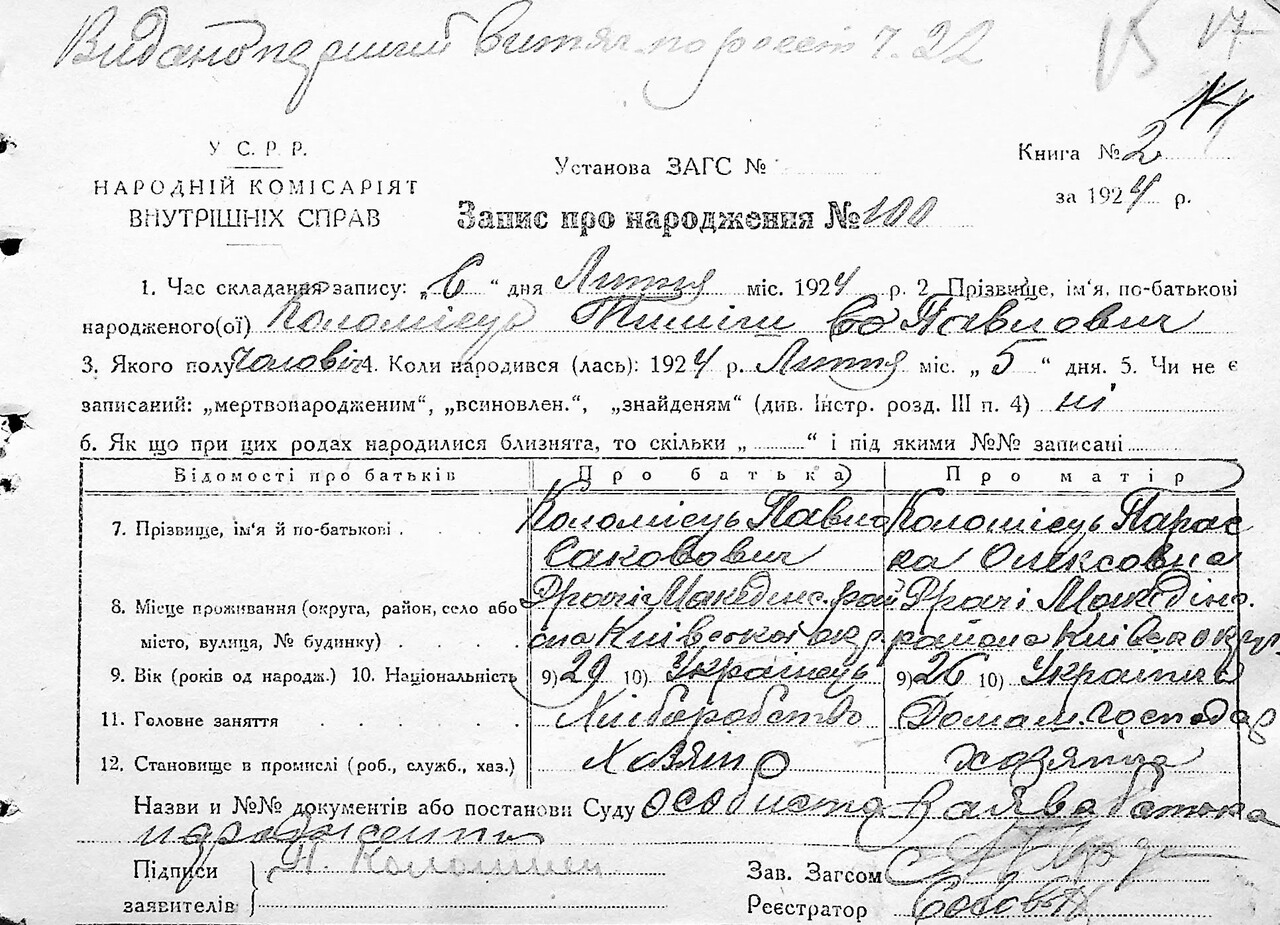 Видано перший витяг по реєст ч. 22
15 17
У. С. Р. Р.
НАРОДНІЙ КОМІСАРІЯТ
ВНУТРІШНІХ СПРАВ
Установа ЗАГС №
Книга № 2
за 1924 р.
Запис про народження № 100
1. Час складання запису: „6“ дня Лютня міс. 1924 р. 2. Прізвище, ім'я, по-батькові
народженого(ої) Коломієць Павлович
3. Якого полу чоловіч 4. Коли народився (лась): 1924 р. Лютня міс. „5“ дня. 5. Чи не є
записаний: „мертвонародженим“, „всиновлен.“, „знайденям“ (див. Інстр. розд. III п. 4) ні
6. Як що при цих родах народилися близнята, то скільки „ “ і під якими №№ записані
Відомості про батьків Про батька Про матір
7. Прізвище, ім'я й по-батькові Коломієць Павло Коломієць Парас
Сакович ка Олексовна
8. Місце проживання (округа, район, село або Македонс. рай
місто, вулиця, № будинку) она Київської окр. района Київск округ.
9. Вік (років од народж.) 10. Національність 9) 29 10) Українець 9) 26 10) Українка
11. Головне заняття Хліборобство Домаш. господар
12. Становище в промислі (роб., служб., хаз.) Хозяїн хозяйка
Назви и №№ документів або постанови Суду особиста заява батька
народженого
Підписи
заявителів П. Коломиец
Зав. Загсом
Реєстратор